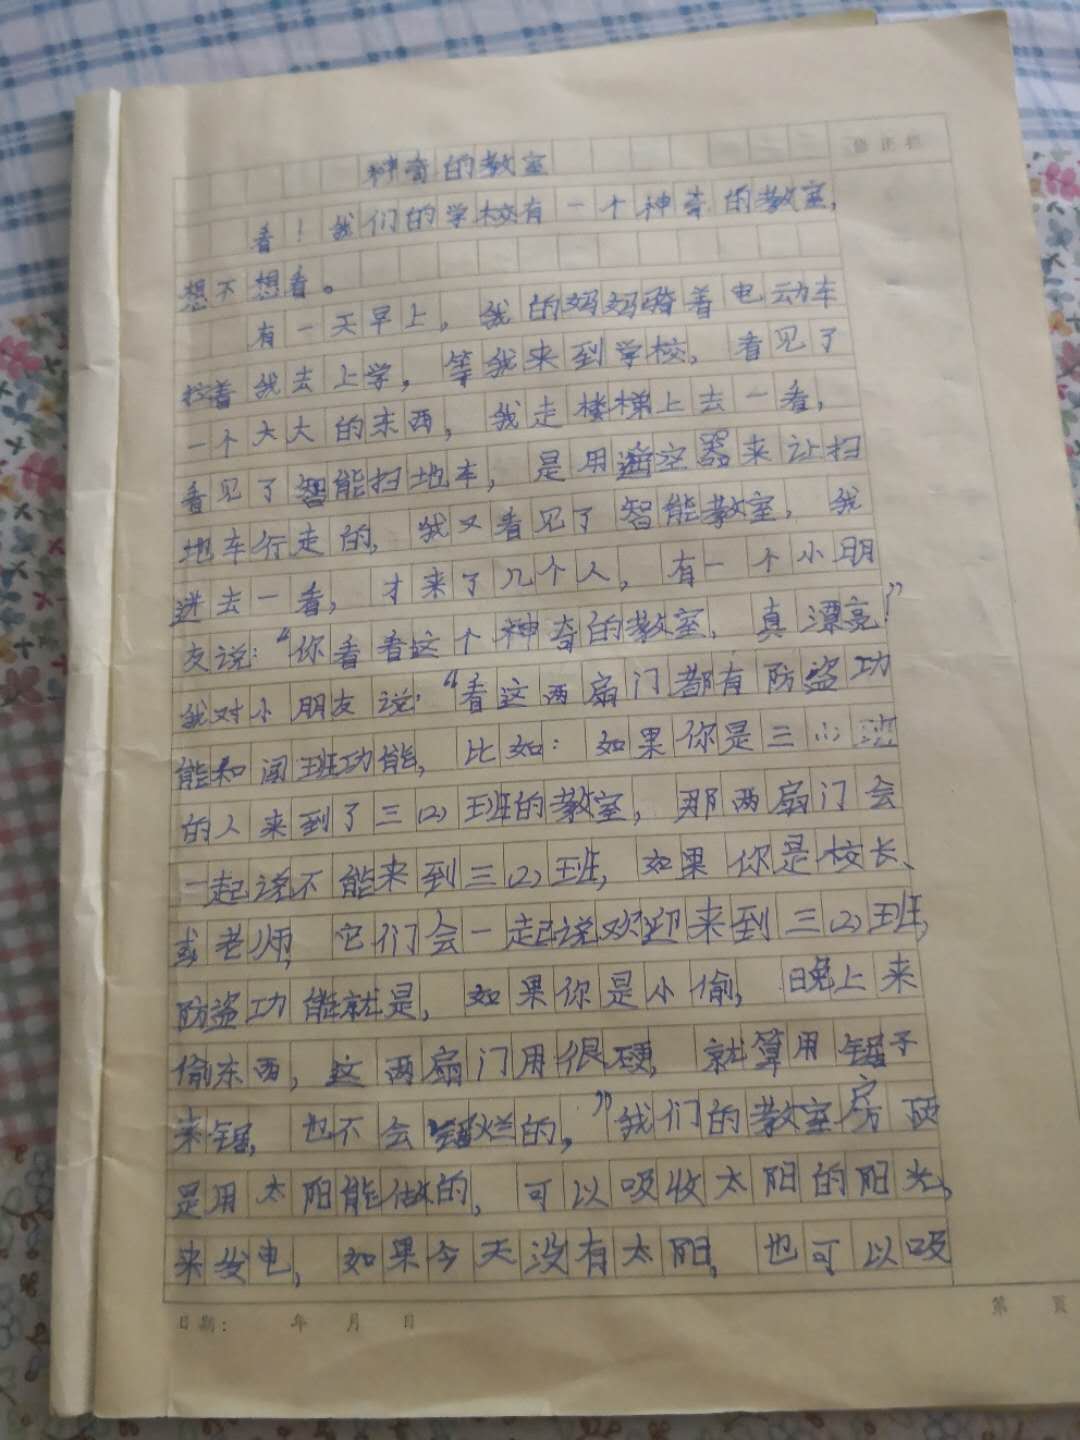 神奇的教室
看！我们的学校有一个神奇的教室，
想不想看。
有一天早上，我的妈妈骑着电动车
拉着我去上学，等我来到学校，看见了
一个大大的东西，我走楼梯上去一看，
看见了智能扫地车，是用遥空器来让扫
地车行走的，我又看见了智能教室，我
进去一看，才来了几个人，有一个小朋
友说：“你看看这个神奇的教室，真漂亮！”
我对小朋友说：“看这两扇门都有防盗功
能和闻班功能，比如：如果你是三
的人来到了三(2)班的教室，那两扇门会
一起说不能来到三(2)班，如果你是校长、
或老师，它们会一起说欢迎来到三(2)班，
防盗功能就是，如果你是小偷，晚上来
偷东西，这两扇门用很硬，就算用锯子
来锯，也不会锯烂的，”我们的教室房顶
是用太阳能做的，可以吸收太阳的阳光，
来发电，如果今天没有太阳，也可以吸
日期： 年 月 日
第 页